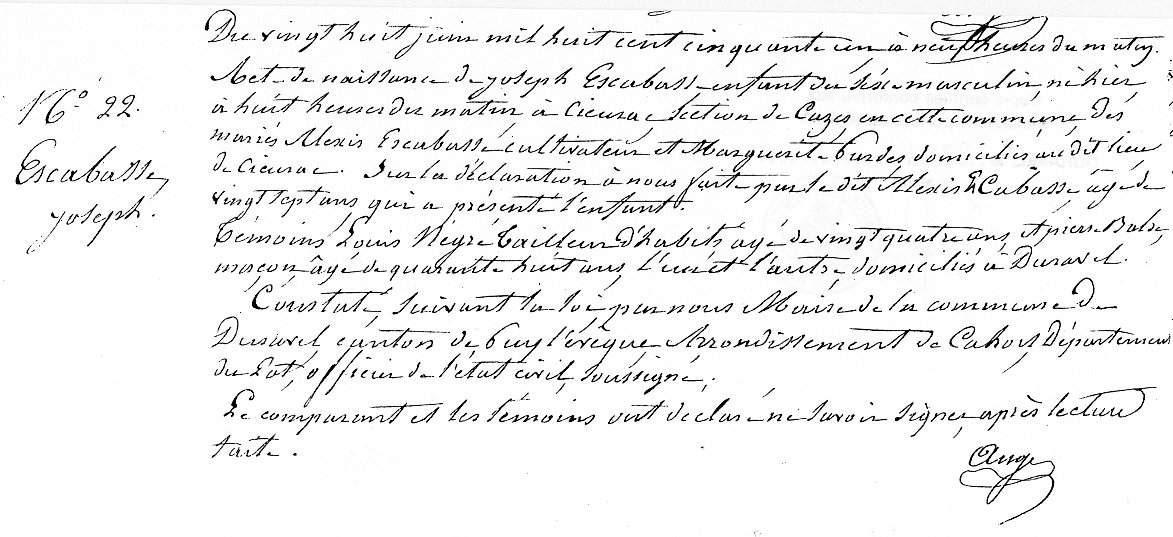 N° 22.
Escabasse,
joseph.
Du vingt huit juin mil huit cent cinquante un, à neuf heures du matin.
Acte de naissance de joseph Escabasse enfant du séxe masculin né hier,
à huit heures du matin à Cieurac Section de Cazes en cette commune, des
mariés Alexis Escabasse, cultivateur et Marguerite Burdes, domiciliés au dit lieu
de Cieurac. Sur la déclaration à nous faite par le dit Alexis Escabasse, âgé de
vingt sept ans, qui a présenté l'enfant.
Témoins, Louis Négre tailleur d'habits, âgé de vingt quatre ans, et pierre
maçon, âgé de quarante huit ans, l'un et l'autre domiciliés à Duravel.
Constaté, suivant la loi, par nous Maire de la commune de
Duravel, canton de Puy l'évêque Arrondissement de Cahors, Département
du Lot, officier de l'état civil, soussigné;
Le comparant et les témoins ont declaré ne savoir signer, après lecture
faite.